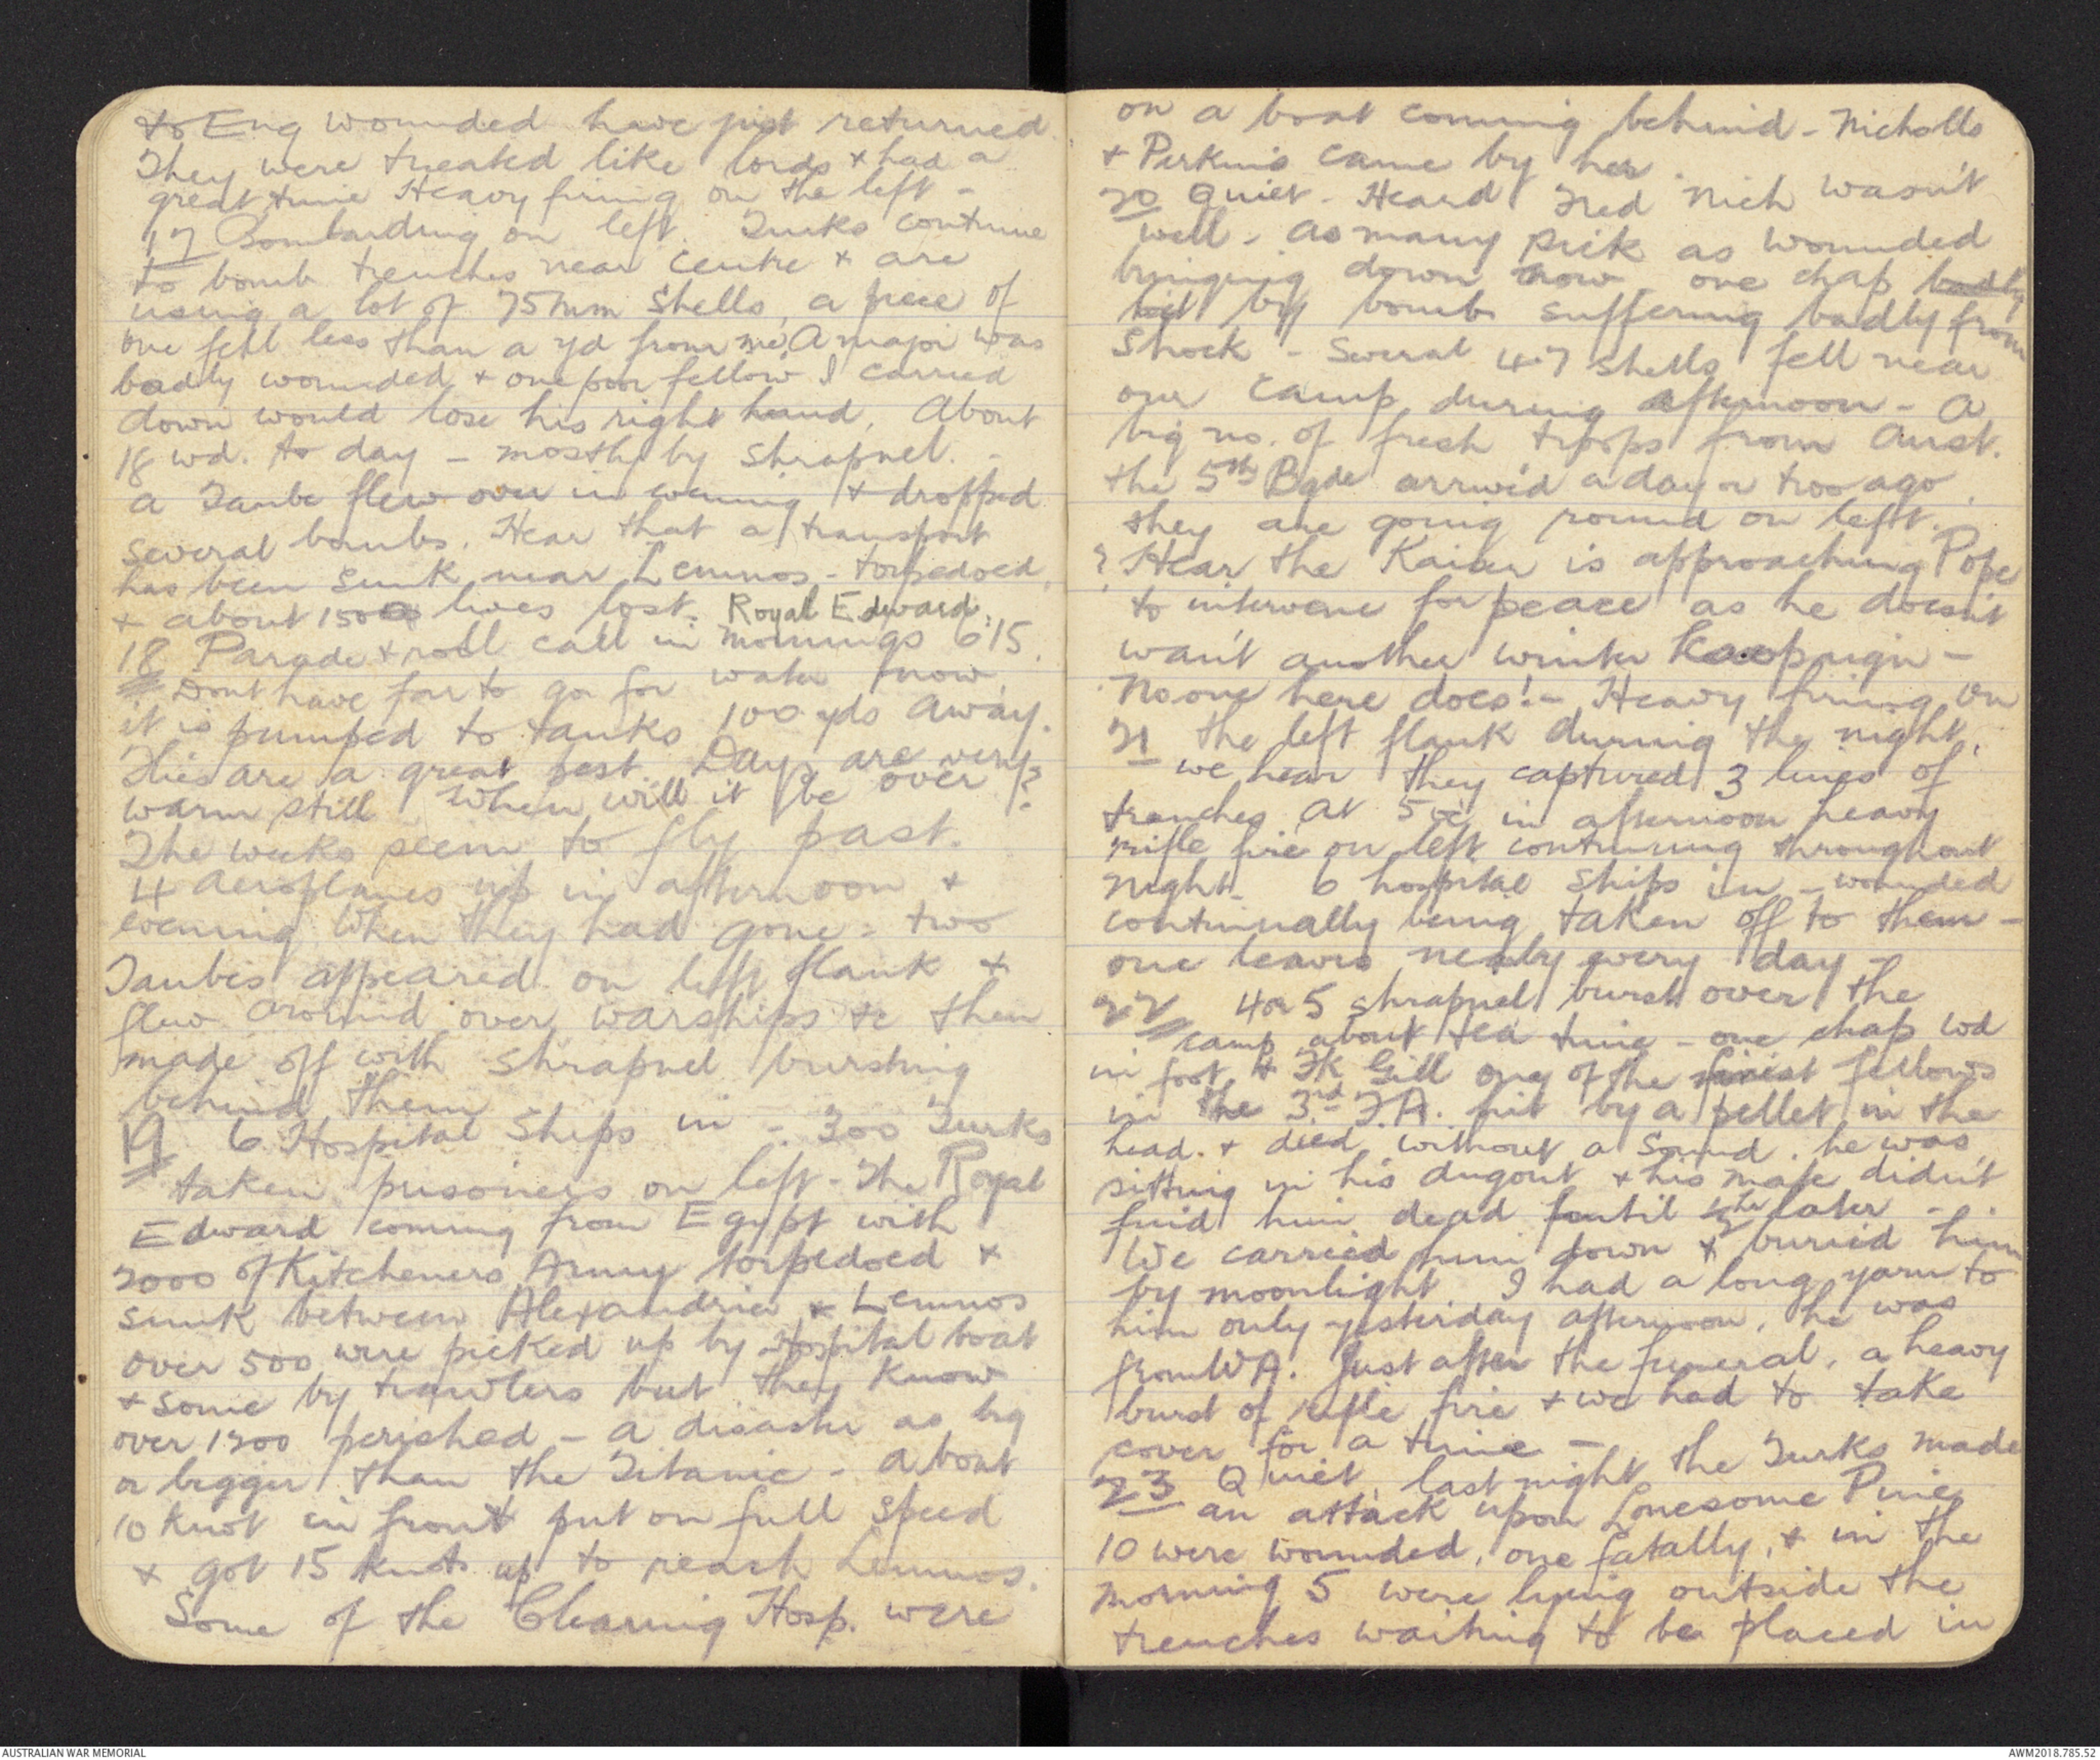 to Eng wounded have just returned.
They were treated like lords & had a
great time Heavy firing on the left -
17 Bombarding on left. Turks continue
to bomb trenches near centre & are
using a lot of 75mm shells, a piece of
one fell less than a yd from me. A major was
badly wounded & one poor fellow I carried
down would lose his right hand. About
18 wd. to day - mostly by shrapnel. -
a Taube flew over in evening & dropped
several bombs. Hear that a transport
has been sunk near Lemnos - torpedoed
& about 1500 lives lost. Royal Edward.
18 Parade & roll call in mornings 6 15.
Dont have far to go for water now
it is pumped to tanks 100 yds away.
Flies are a great pest. Days are very
warm still When will it be over?
The weeks seem to fly past.
4 aeroplanes up in afternoon &
evening When they had gone - two
Taubes appeared on left flank &
flew around over warships &c then
made off with shrapnel bursting
behind them
19 6 Hospital Ships in - 300 Turks
taken prisoners on left - The Royal
Edward coming from Egypt with
2000 of Kitcheners Army torpedoed &
sunk between Alexandria & Lemnos
over 500 were picked up by Hospital boat
& some by trawlers but they know
over 1200 perished - a disaster as big
or bigger than the Titanic - About
10 knot in front put on full speed
& got 15 knots up to reach Lemnos.
Some of the Clearing Hosp. were
on a boat coming behind - Nicholls
& Perkins came by her.
20 Quiet - Heard Fred Nich wasn't
well - as many sick as wounded
bringing down now - one chap badly
hit by bomb suffering badly from
Shock - Several 4.7 shells fell near
our camp during afternoon - A
big no. of fresh troops from Aust.
the 5th Bgde arrived a day or two ago.
they are going round on left.
? Hear the Kaiser is approaching Pope
to intervene for peace as he doesn't
want another winter Kampaign -
No one here does! - Heavy firing on
21 the left flank during the night.
we hear they captured 3 lines of
trenches At 5 oc in afternoon heavy
rifle fire on left continuing throughout
night - 6 hospital ships in - wounded
continually being taken off to them -
one leaves nearly every day -
22 4 or 5 shrapnel burst over the
camp about tea time - one chap wd
in foot & Fk Gill one of the finest fellows
in the 3rd F.A. hit by a pellet in the
head. & died without a sound. he was
sitting in his dugout & his mate didn't
find him dead until ½hr later -
We carried him down & buried him
by moonlight. I had a long yarn to
him only yesterday afternoon, he was
from W A. Just after the funeral, a heavy
burst of rifle fire & we had to take
cover for a time -
23 Quiet, last night the Turks made
an attack upon Lonesome Pine
10 were wounded, one fatally, & in the
morning 5 were lying outside the
trenches waiting to be placed in
AUSTRALIAN WAR MEMORIAL
AWM2018.785.52